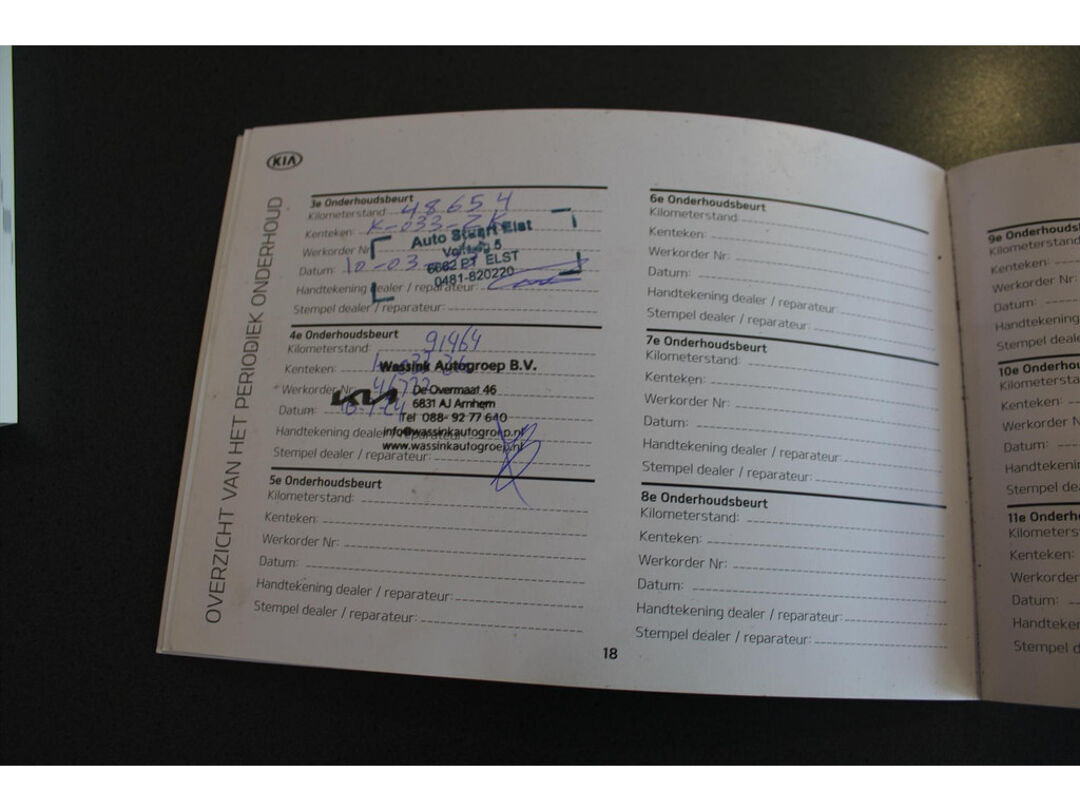 KIA
OVERZICHT VAN HET PERIODIEK ONDERHOUD
3e Onderhoudsbeurt
Kilometerstand: 48654
Kenteken: K-033-ZK
Werkorder Nr:
Datum: 10-03
Handtekening dealer / reparateur:
Stempel dealer / reparateur:
Auto Stuart Elst
5
6662 PT ELST
0481-820220
4e Onderhoudsbeurt
Kilometerstand: 91464
Kenteken:
Werkorder Nr:
Datum:
Handtekening dealer / reparateur:
Stempel dealer / reparateur:
Wassink Autogroep B.V.
KIA
De Overmaat 46
6831 AJ Arnhem
Tel 088- 92 77 640
info@wassinkautogroep.nl
www.wassinkautogroep.nl
5e Onderhoudsbeurt
Kilometerstand:
Kenteken:
Werkorder Nr:
Datum:
Handtekening dealer / reparateur:
Stempel dealer / reparateur:
6e Onderhoudsbeurt
Kilometerstand:
Kenteken:
Werkorder Nr:
Datum:
Handtekening dealer / reparateur:
Stempel dealer / reparateur:
7e Onderhoudsbeurt
Kilometerstand:
Kenteken:
Werkorder Nr:
Datum:
Handtekening dealer / reparateur:
Stempel dealer / reparateur:
8e Onderhoudsbeurt
Kilometerstand:
Kenteken:
Werkorder Nr:
Datum:
Handtekening dealer / reparateur:
Stempel dealer / reparateur:
18
9e Onderhouds
Kilometerstand
Kenteken:
Werkorder Nr:
Datum:
Handtekening
Stempel deale
10e Onderhou
Kilometersta
Kenteken:
Werkorder N
Datum:
Handtekenin
Stempel de
11e Onderh
Kilometers
Kenteken:
Werkorder
Datum:
Handteke
Stempel d